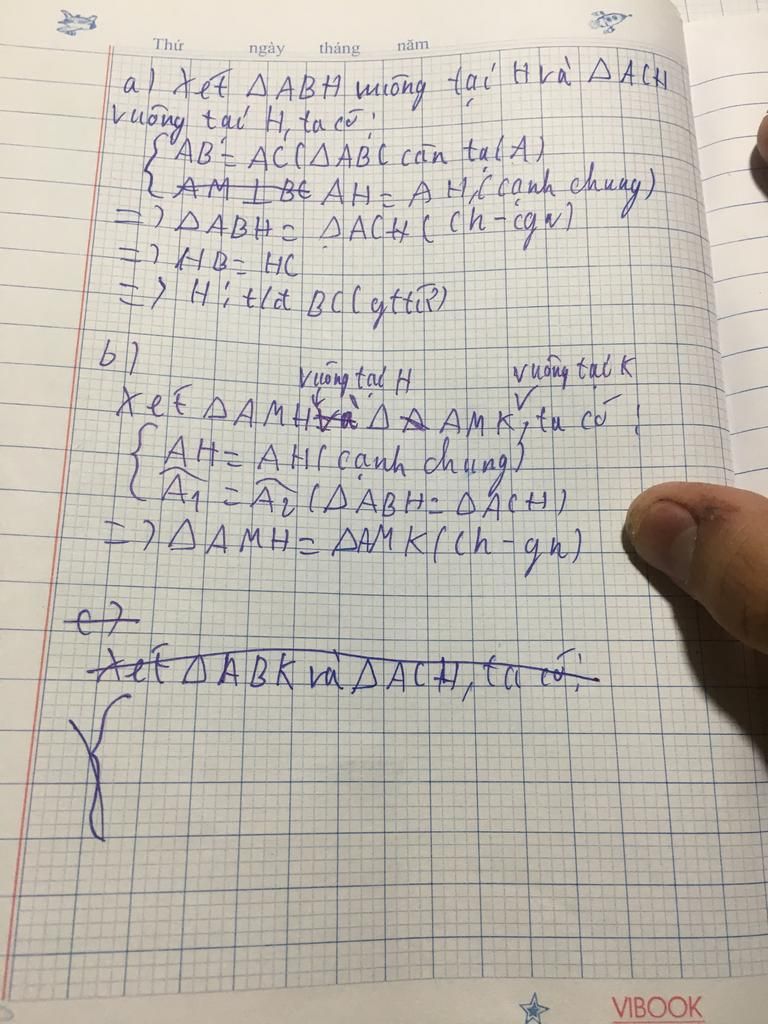 Thứ ngày tháng năm
a) Xét ΔABH vuông tại H và ΔACH
vuông tại H, ta có:
{ AB = AC (ΔABC cân tại A)
{ AM ⊥ BC AH = AH (cạnh chung)
=> ΔABH = ΔACH (ch-cgv)
=> HB = HC
=> H: t/đ BC
b)
vuông tại H vuông tại K
Xét ΔAMH và Δ A AMK, ta có:
{ AH = AH (cạnh chung)
{ Â1 = Â2 (ΔABH = ΔACH)
=> ΔAMH = ΔAMK (ch-gn)
c)
Xét ΔABK và ΔACH, ta có:
{
VIBOOK